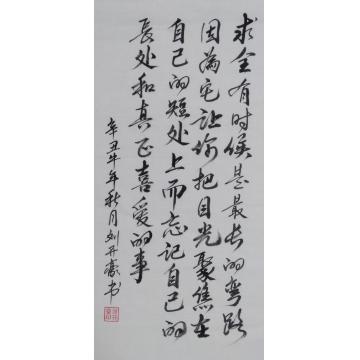 求全有时候是最长的弯路
因为它让你把目光聚焦在
自己的短处上而忘记自己的
长处和真正喜爱的事
辛丑牛年秋月刘开豪书